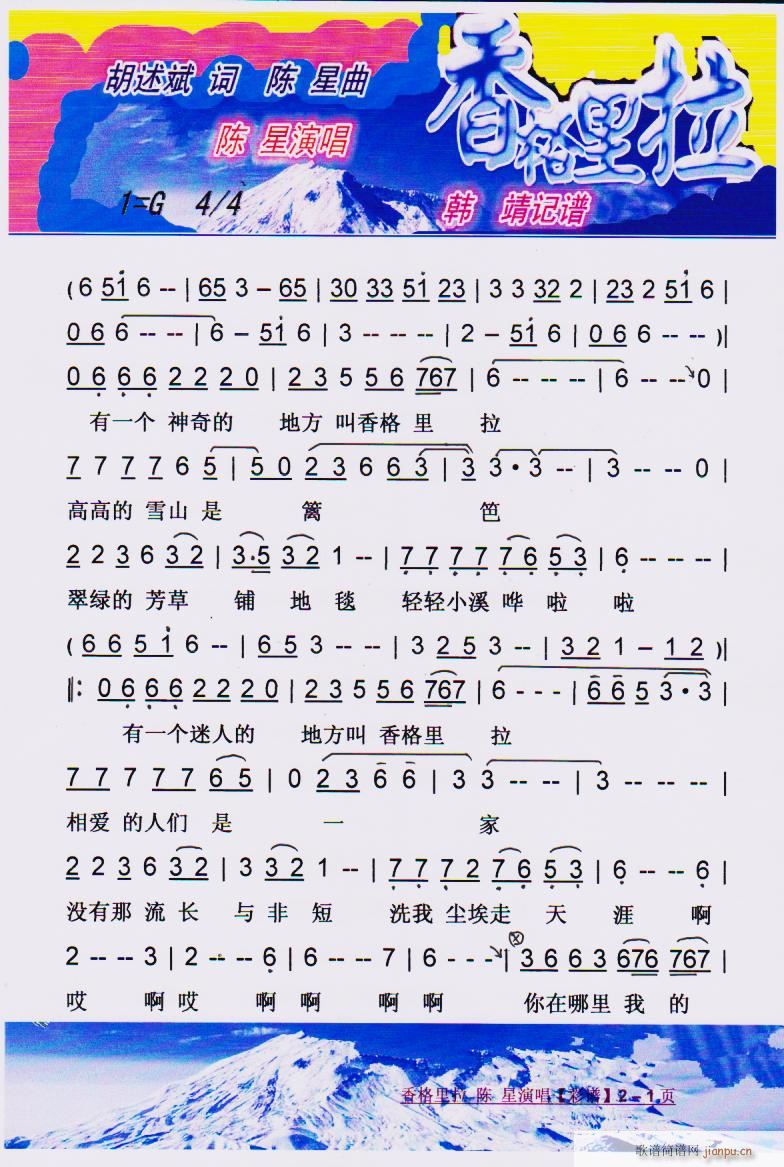 香格里拉
胡述斌 词 陈 星曲
陈 星演唱
1=G 4/4
韩 靖记谱
( 6 51 6 -- | 65 3 – 65 | 30 33 51 23 | 3 3 32 2 | 23 2 51 6 |
0 6 6 -- -- | 6 – 51 6 | 3 -- -- -- | 2 – 51 6 | 0 6 6 -- -- )|
0 6 6 6 2 2 2 0 | 2 3 5 5 6 767 | 6 -- -- -- | 6 -- -- 0 |
有一个 神奇的 地方 叫香格 里 拉
7 7 7 7 6 5 | 5 0 2 3 6 6 3 | 3 3 • 3 -- | 3 -- -- 0
高高的 雪山 是 篱 笆
2 2 3 6 3 2 | 3 · 5 3 2 1 -- | 7 7 7 7 7 6 5 3 | 6 -- -- --
翠绿的 芳草 铺 地 毯 轻轻小溪 哗 啦 啦
( 6 6 5 1 6 -- | 6 5 3 -- -- | 3 2 5 3 -- | 3 2 1 – 1 2 )|
‖: 0 6 6 6 2 2 2 0 | 2 3 5 5 6 767 | 6 - - - | 6 6 5 3 • 3 |
有一个迷人的 地方叫 香格里 拉
7 7 7 7 7 6 5 | 0 2 3 6 6 | 3 3 -- -- | 3 -- -- -- |
相爱 的人们 是 一 家
2 2 3 6 3 2 | 3 3 2 1 -- | 7 7 7 2 7 6 5 3 | 6 -- -- 6
没有那 流 长 与 非 短 洗我 尘埃走 天 涯 啊
2 -- -- 3 | 2 -- -- 6 | 6 -- -- 7 | 6 - - - | 3 6 6 3 676 767 |
哎 啊 哎 啊 啊 啊 啊 你在哪里 我 的
香格里拉 陈 星演唱【彩谱】2－1页
歌谱简谱网 jianpu.cn